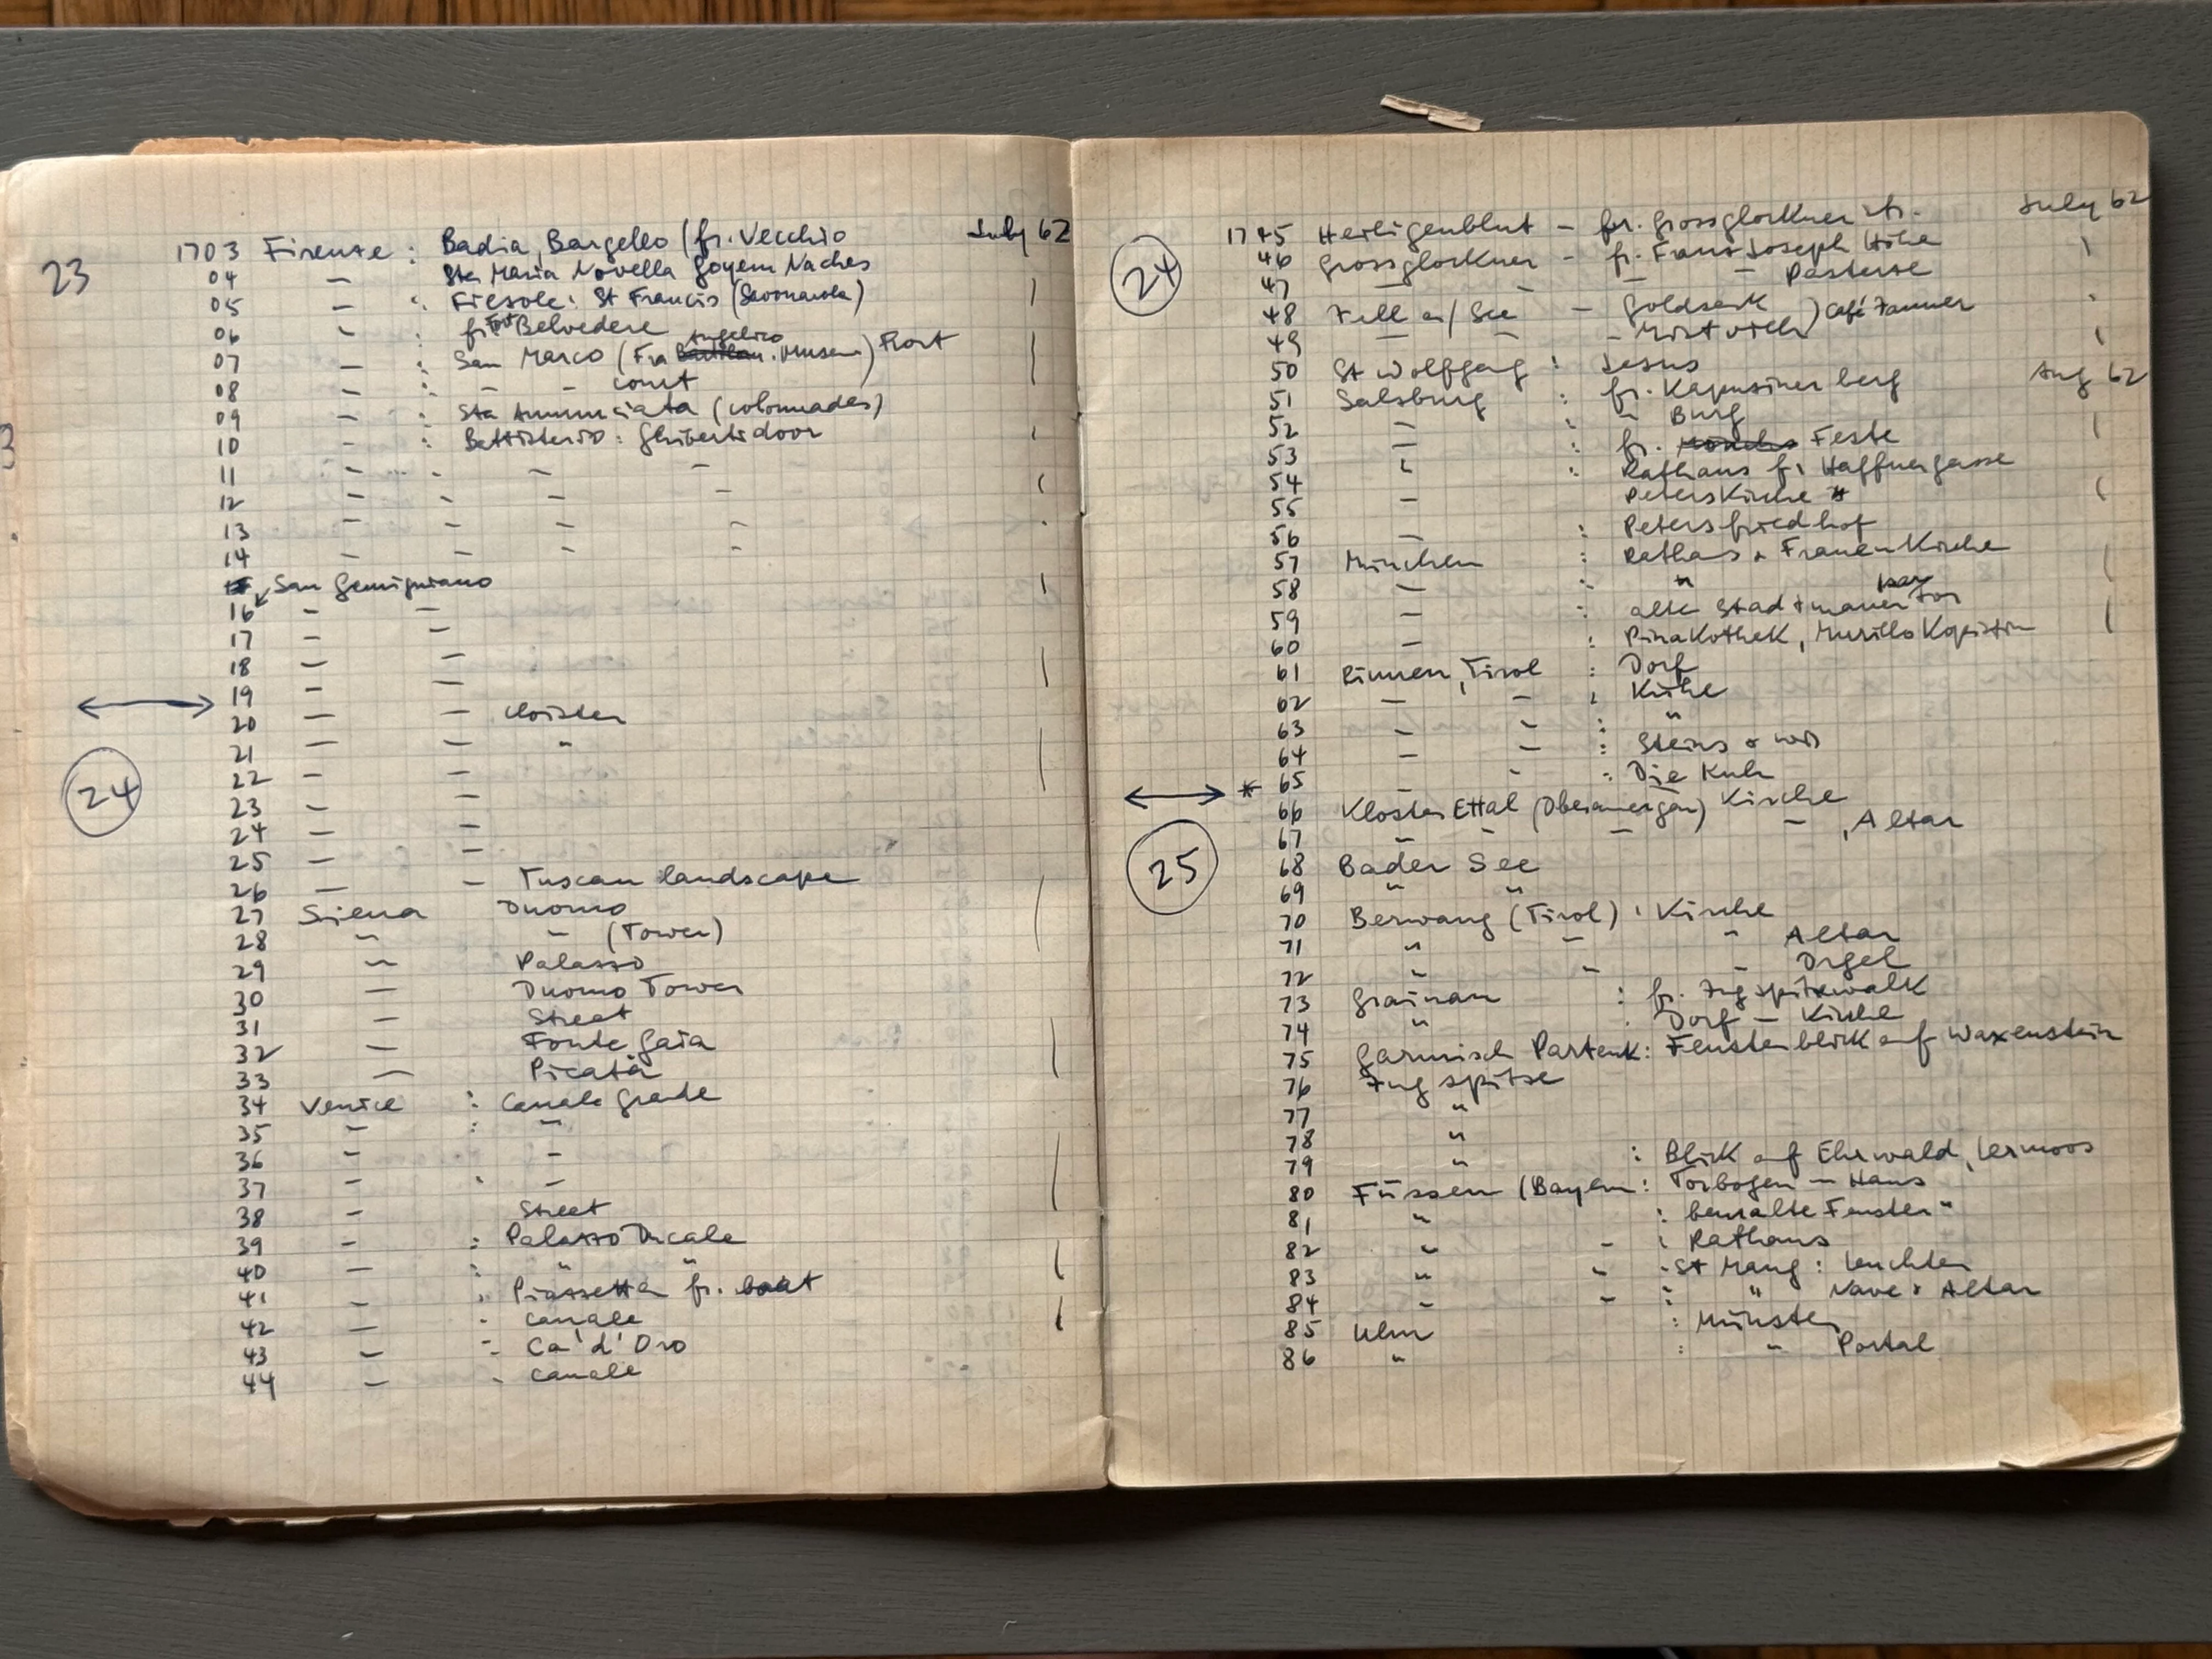 23
1703 Firenze : Badia, Bargello (fr. Vecchio July 62
04 – Sta Maria Novella Goyem Naches
05 – : Fiesole: St Francis (Savonarola)
06 – fr Fort Belvedere
07 – : San Marco (Fra Angelico Museum)
08 – : – – court
09 – : Sta Annunciata (colonnades)
10 – : Battisterio: Ghiberti door
11 – – – –
12 – – – –
13 – – – –
14 – – – –
San Gemignano
16 – –
17 – –
18 – –
19 – –
20 – – cloister
21 – – "
24
22 – –
23 – –
24 – –
25 – –
26 – – Tuscan landscape
27 Siena Duomo
28 " – (Tower)
29 " Palazzo
30 – Duomo Tower
31 – Street
32 – Fonte Gaia
33 –
34 Venice : Canale Grade
35 – : –
36 – –
37 – –
38 – Street
39 – : Palazzo Ducale
40 – : " "
41 – : Piazzetta fr. boat
42 – - canale
43 – - Ca' d'Oro
44 – - canale
24
1745 Heiligenblut – fr. Grossglockner July 62
46 Grossglockner – fr. Franz Joseph Höhe
47 – – – – Pasterze
48 Zell a/See – ) Café
49 – – –
50 St Wolfgang : Jesus
51 Salzburg : fr. Kapuziner berg Aug 62
52 – : " Burg
53 – : fr. Feste
54 " : Rathaus fr Haffnergasse
55 – Peters Kirche
56 – : Petersfriedhof
57 München : Rathaus & Frauen Kirche
58 – : "
59 – : alte Stadtmauer Isar Tor
60 – : Pinakothek, Murillo Kopistin
61 Rinnen, Tirol : Dorf
62 – – : Kühe
63 – – : "
64 – – :
* 65 – – : Die Kuh
25
66 Kloster Ettal (Oberamergau) Kirche
67 – – – – , Altar
68 Bader See
69 " "
70 Berwang (Tirol) : Kirche
71 " – " Altar
72 " – – Orgel
73 Grainau : fr. Zugspitzwalk
74 " : Dorf – Kirche
75 Garmisch Partenk: Fensterblick auf Waxenstein
76 Zugspitze
77 "
78 "
79 " : Blick auf Ehrwald, Lermoos
80 Füssen (Bayern : Torbogen – Haus
81 " : bemalte Fenster "
82 " – : Rathaus
83 " – - St Mang : Leuchter
84 – – : " Nave & Altar
85 Ulm : Münster
86 " : " Portal